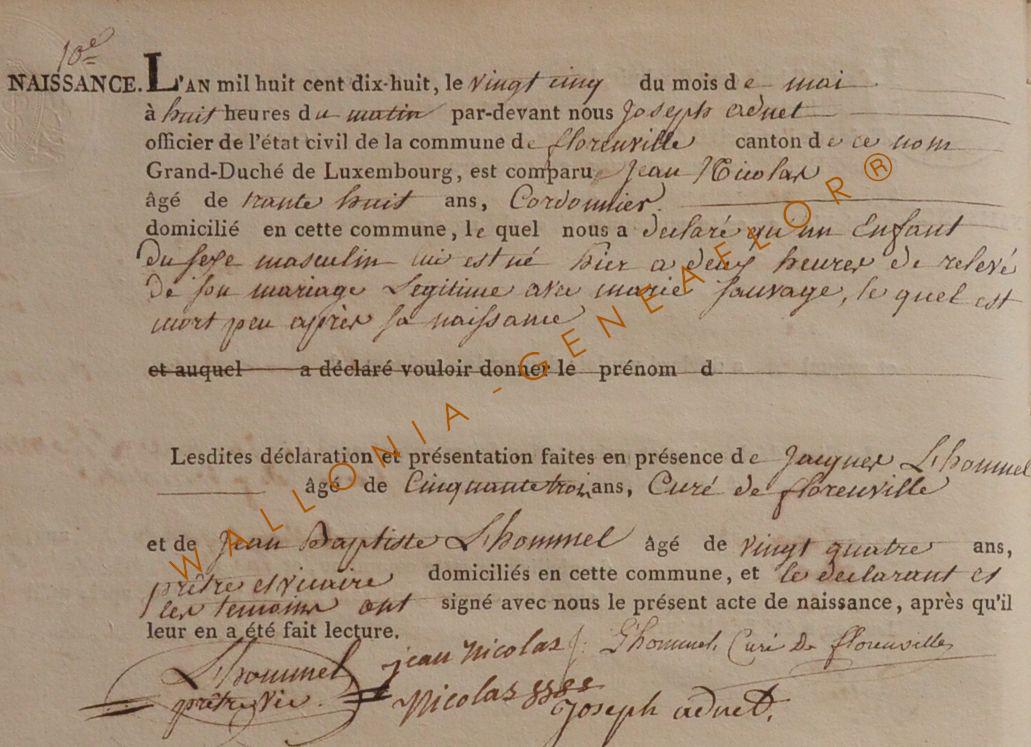 10e
NAISSANCE. L'AN mil huit cent dix-huit, le vingt cinq du mois de mai
à huit heures du matin par-devant nous Joseph adnet
officier de l'état civil de la commune de florenville canton de ce nom
Grand-Duché de Luxembourg, est comparu Jean Nicolas
âgé de trante huit ans, Cordonnier.
domicilié en cette commune, le quel nous a declaré qu'un Enfant
du sexe masculin lui est né hier a deux heures de relevé
de son mariage Legitime avec marie Sauvage, le quel est
mort peu après sa naissance
et auquel a déclaré vouloir donner le prénom d
Lesdites déclaration et présentation faites en présence de Jacques L'hommel
âgé de Cinquante trois ans, Curé de florenville
et de Jean Baptiste L'hommel âgé de vingt quatre ans,
prêtre et vicaire domiciliés en cette commune, et le declarant et
les temoins ont signé avec nous le présent acte de naissance, après qu'il
leur en a été fait lecture.
jean Nicolas J: L'hommel, Curé De florenville
L'hommel
prêtre vic. Nicolas
Joseph adnet.
WALLONIA-GENEAFLOR®